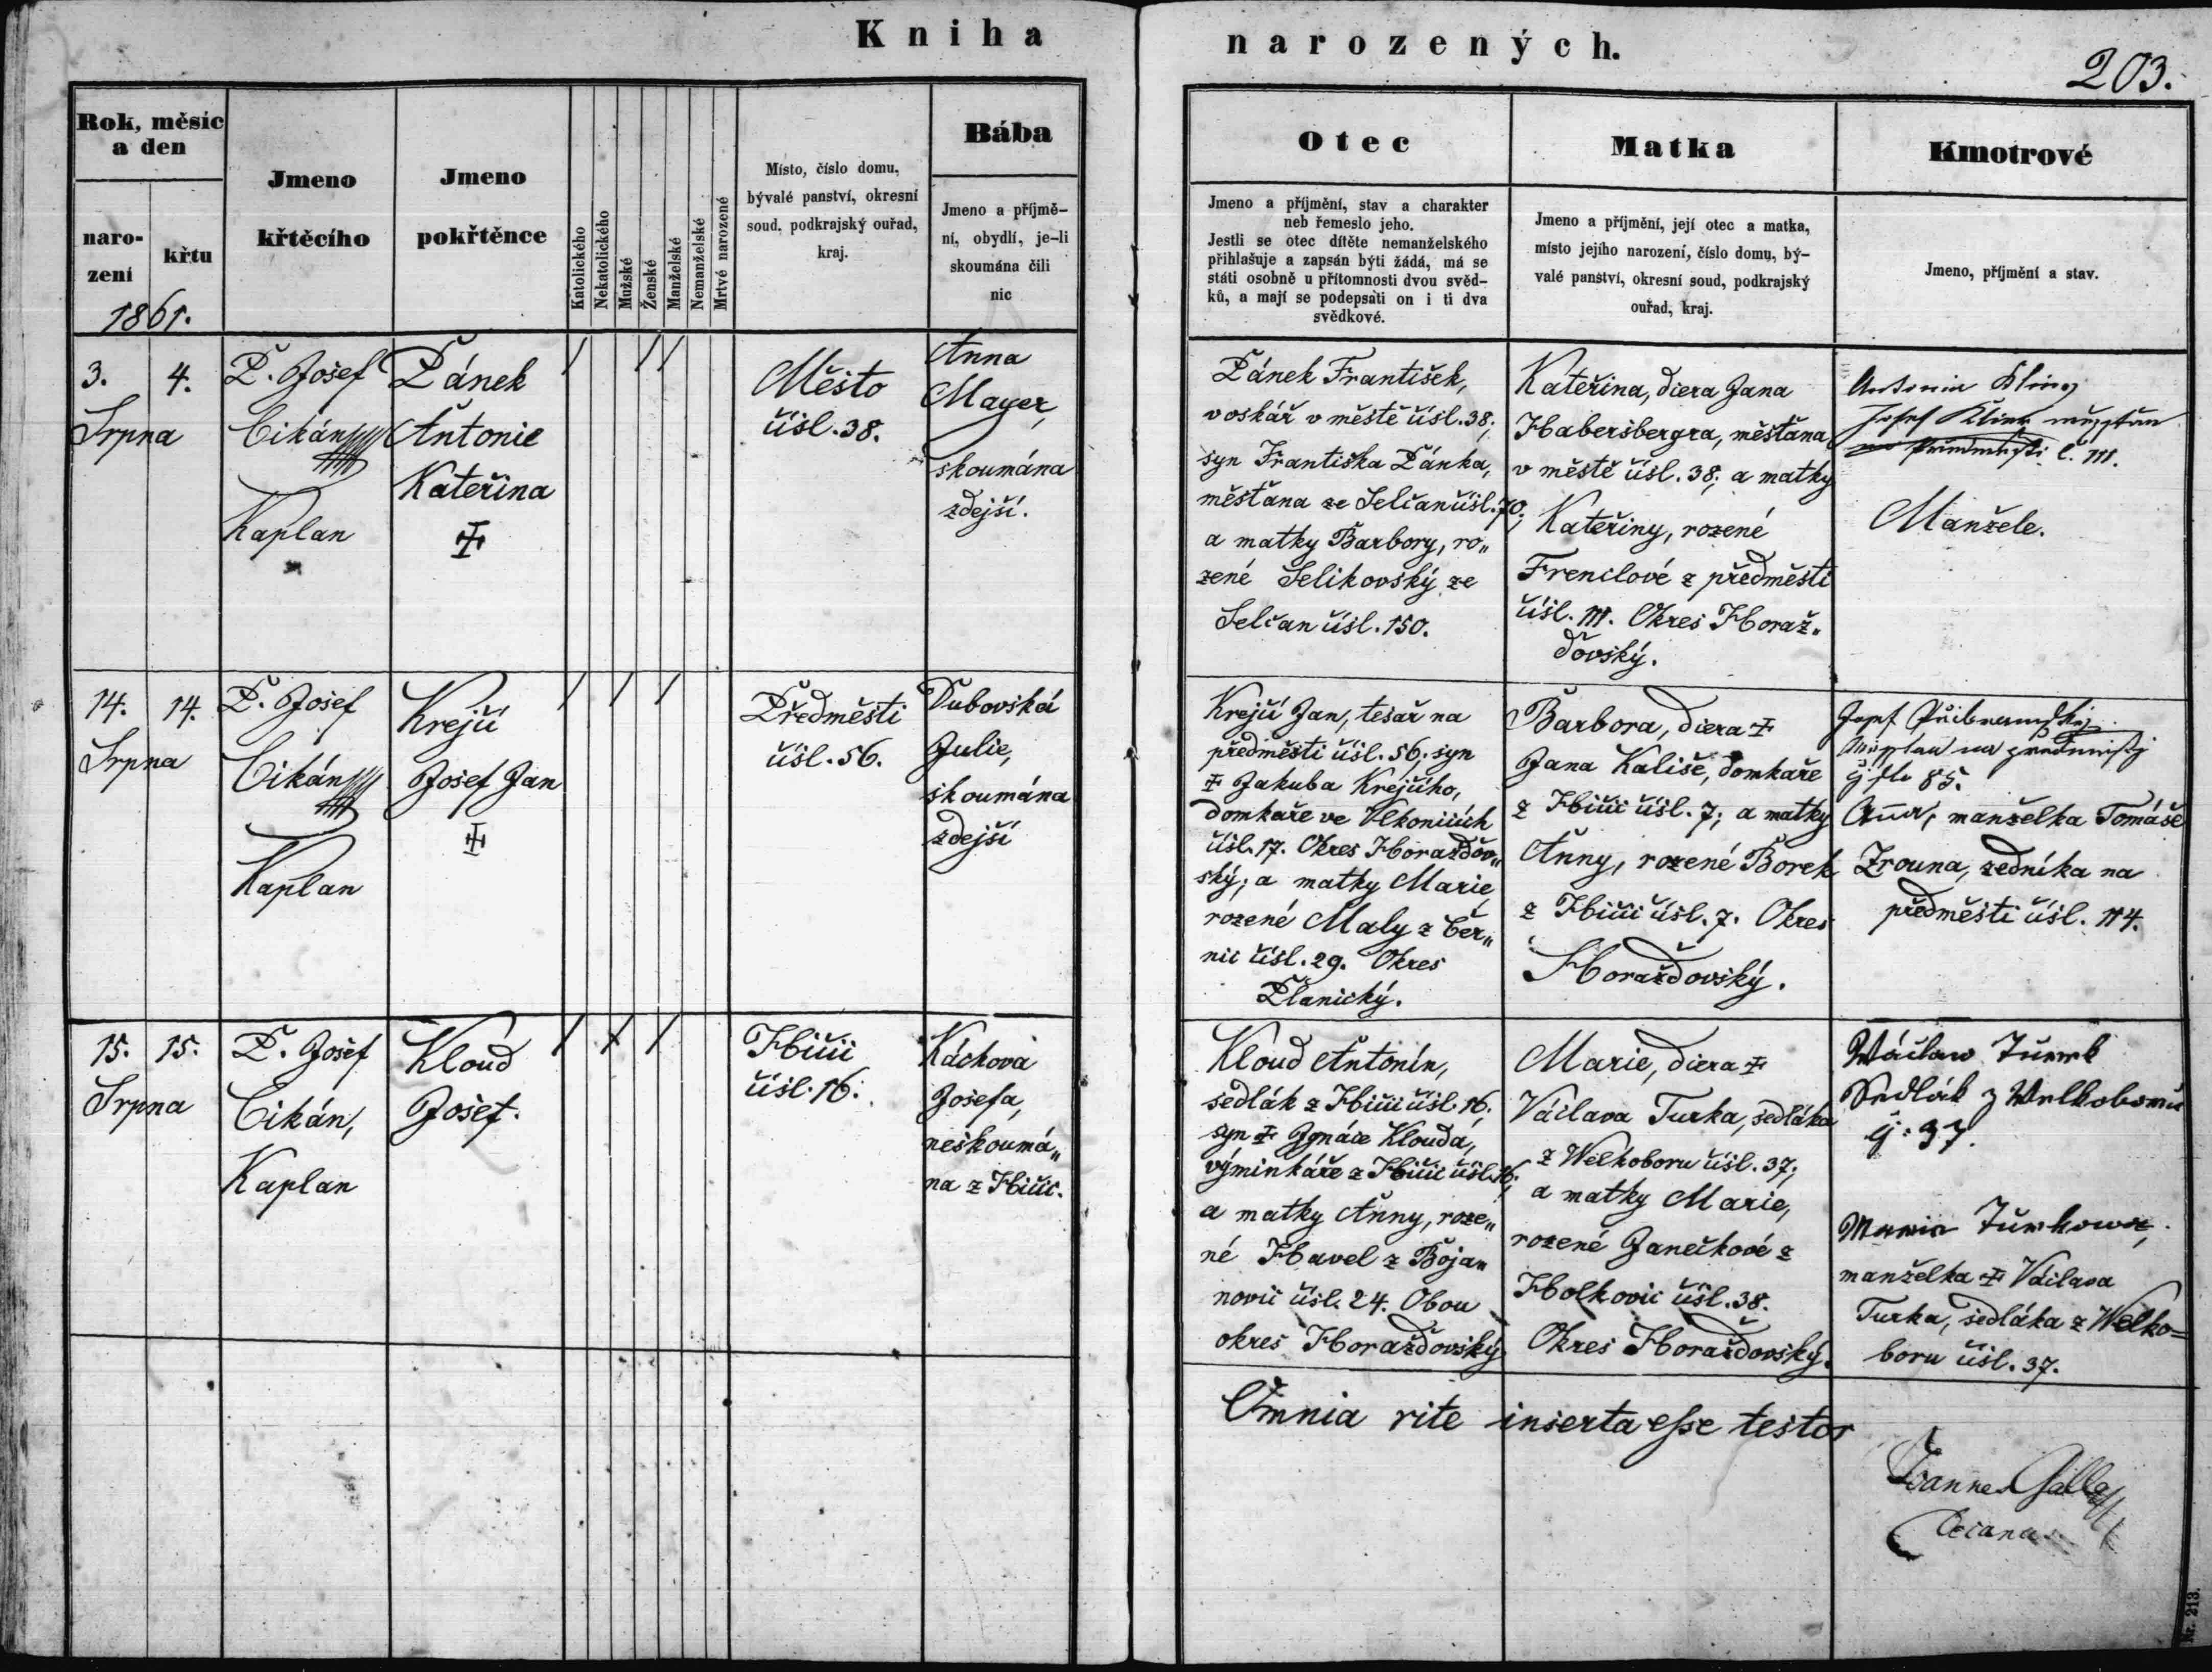 Kniha
narozených.
203.
Rok, měsíc
a den
naro-
zení
křtu
1861.
Jmeno
křtěcího
Jmeno
pokřtěnce
Katolického
Nekatolického
Mužské
Ženské
Manželské
Nemanželské
Mrtvě narozené
Místo, číslo domu,
bývalé panství, okresní
soud, podkrajský ouřad,
kraj.
Bába
Jmeno a příjmě-
ní, obydlí, je-li
skoumána čili
nic
Otec
Jmeno a příjmění, stav a charakter
neb řemeslo jeho.
Jestli se otec dítěte nemanželského
přihlašuje a zapsán býti žádá, má se
státi osobně u přítomnosti dvou svěd-
ků, a mají se podepsati on i ti dva
svědkové.
Matka
Jmeno a příjmění, její otec a matka,
místo jejího narození, číslo domu, bý-
valé panství, okresní soud, podkrajský
ouřad, kraj.
Kmotrové
Jmeno, příjmění a stav.
3. 4.
Srpna
P. Josef
Cikán
Kaplan
Pánek
Antonie
Kateřina
Město
čísl. 38.
Anna
Mayer,
skoumána
zdejší.
Pánek František,
voskář v městě čísl. 38;
syn Františka Pánka,
měšťana ze Selčan čísl. 70;
a matky Barbory, ro„
zené Selikovský ze
Selčan čísl. 150.
Kateřina, dcera Jana
Habersbergra, měšťana
v městě čísl. 38; a matky
Kateřiny, rozené
Frenclové z předměstí
čísl. 111. Okres Horaž„
ďovský.
Antonia
Josef
č. 111.
Manžele.
14. 14.
Srpna
P. Josef
Cikán
Kaplan
Krejčí
Josef Jan
Předměstí
čísl. 56.
Dubovská
Julie,
skoumána
zdejší
Krejčí Jan, tesař na
předměstí čísl. 56; syn
Jakuba Krejčího,
domkaře ve Vlkonicích
čísl. 17. Okres Horažďov„
ský; a matky Marie,
rozené Maly z Čer„
nic čísl. 29. Okres
Plánický.
Barbora, dcera
Jana Kališe, domkaře
z Hbičic čísl. 7; a matky
Anny, rozené Borek
z Hbičic čísl. 7. Okres
Horažďovský.
Josef
na předměstí
čislo 85.
Anna, manželka Tomáše
Zrouna, zedníka na
předměstí čísl. 114.
15. 15.
Srpna
P. Josef
Cikán,
Kaplan
Kloud
Josef.
Hbičic
čísl. 16.
Káchova
Josefa,
neskoumá„
na z Hbičic.
Kloud Antonín,
sedlák z Hbičic čísl. 16.
syn Ignáce Klouda,
výminkáře z Hbičic čísl. 16;
a matky Anny, roze„
né Havel z Boja„
novic čísl. 24. Obou
okres Horažďovský
Marie, dcera
Václava Turka, sedláka
z Welkoboru čísl. 37;
a matky Marie,
rozené Janečkové z
Holkovic čísl. 38.
Okres Horažďovský.
Wáclaw Turek
Sedlák z Welkoboru
č. 37.
Maria Turkowa,
manželka Václava
Turka, sedláka z Welko=
boru čísl. 37.
Omnia rite inserta esse testor
Joannes Galla
Nr. 213.